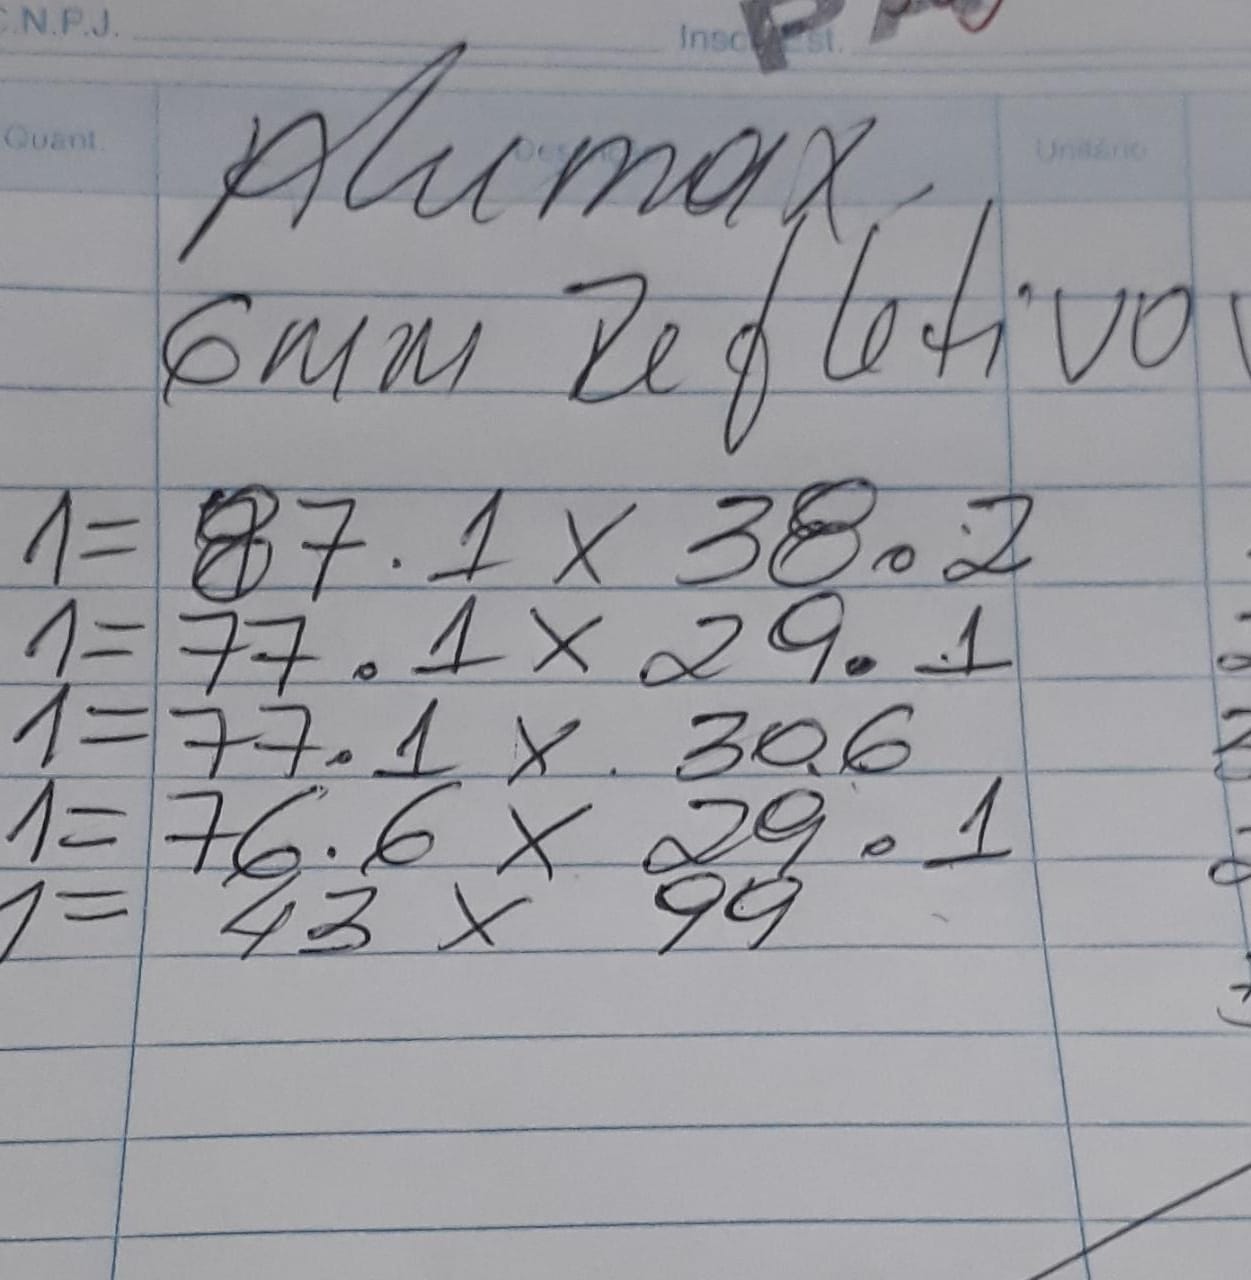 C.N.P.J.
Insc. Est.
Quant.
Unitário
Alumax
6mm Refletivo
1= 87.1 x 38.2
1= 77.1 x 29.1
1= 77.1 x 30.6
1= 76.6 x 29.1
1= 43 x 99